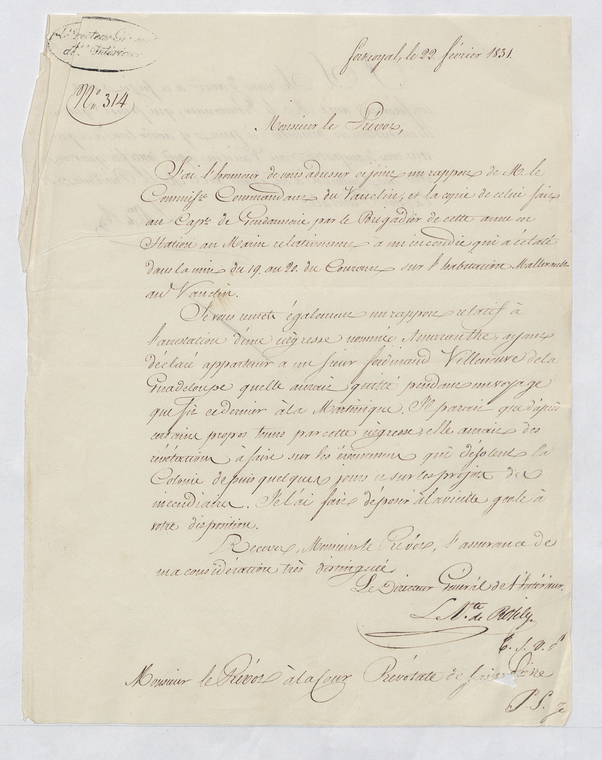 Direction Générale
de l'Intérieur
N°. 314
Fortroyal, le 22. février 1831.
Monsieur le Prévot,
J'ai l'honneur de vous adresser ci joint un rapport de Mr. le
Commissre. Commandant du Vauclin, et la copie de celui fait
au Capne. de Gendarmerie par le Brigadier de cette arme en
Station au Marin relativement à un incendie qui a éclaté
dans la nuit du 19. au 20. du Courant sur l'habitation Mallevault
au Vauclin.
Je vous remets également un rapport relatif à
l'arrestation d'une négresse nommée Amaranthe, ayant
déclaré appartenir à un sieur ferdinand Villeneuve de la
Guadeloupe qu'elle aurait quitté pendant un voyage
que fit ce dernier à la Martinique. Il parait que d'après
certains propos tenus par cette négresse, elle aurait des
révélations à faire sur les événemens qui désolent la
Colonie depuis quelques jours et sur les projets des
incendiaires. Je l'ai fait déposer à la vieille geole à
votre disposition.
Recevez, Monsieur le Prévot, l'assurance de
ma considération très distinguée
Le Directeur Général de l'Intérieur.
Le Vte. de Rosily
T. S. V. P.
Monsieur le Prévot à la Cour Prévotale de Saint Pierre
P. S.